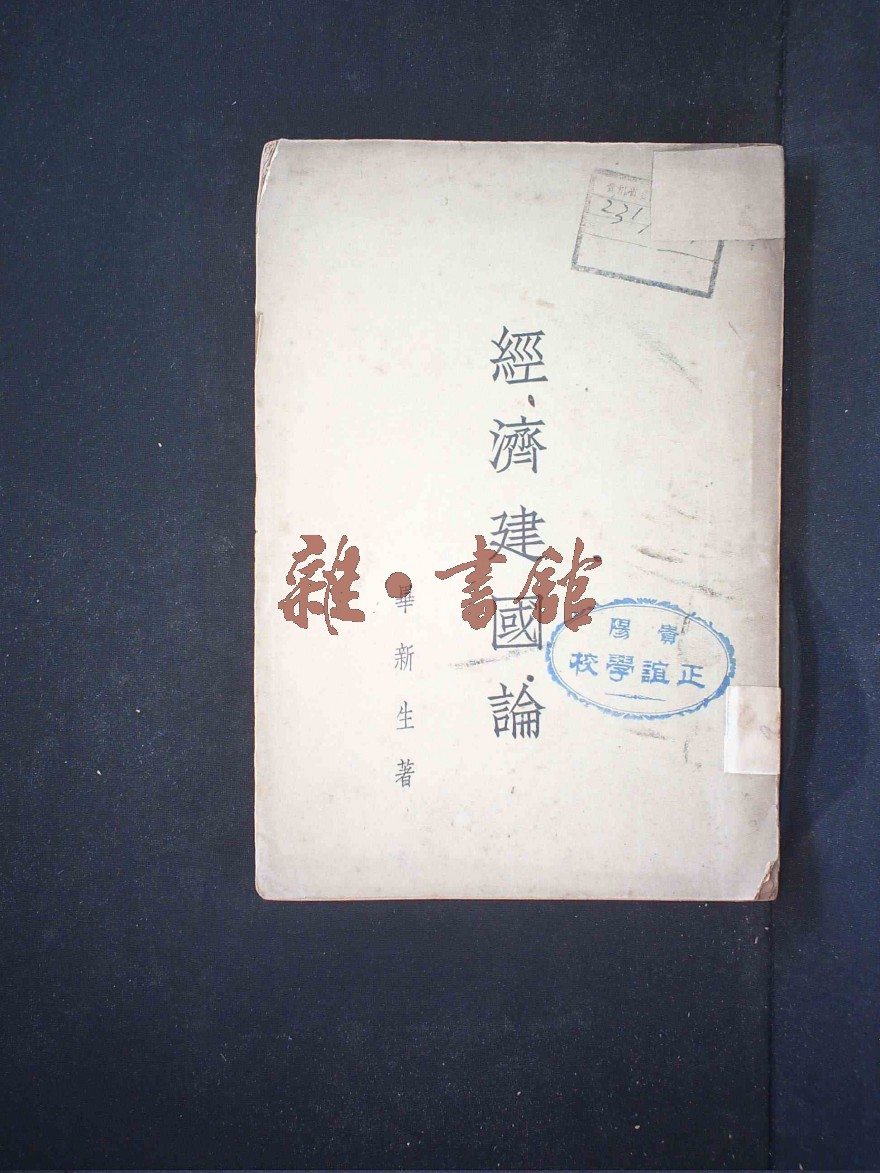 經濟建國論
畢新生著
雜·書館
貴陽
正誼學校
231